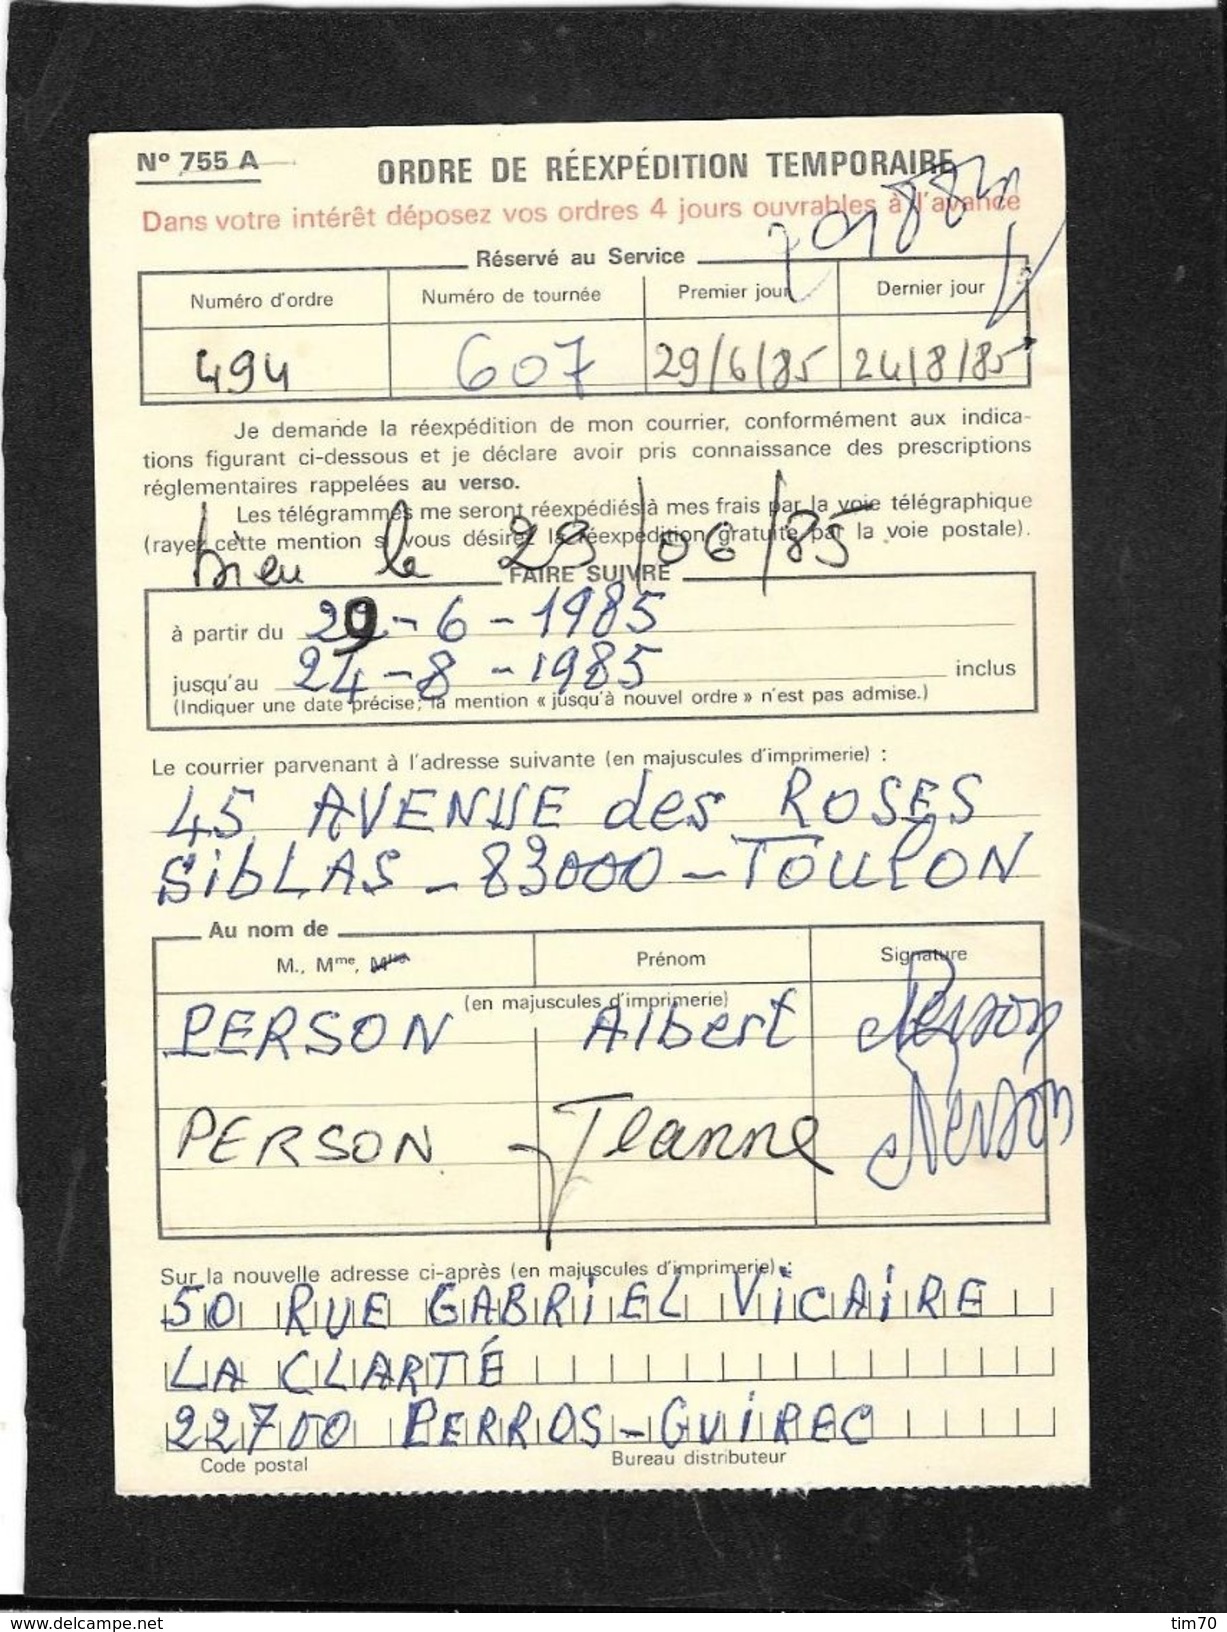 N° 755 A
ORDRE DE RÉEXPÉDITION TEMPORAIRE
Dans votre intérêt déposez vos ordres 4 jours ouvrables à l'avance
Réservé au Service
Numéro d'ordre Numéro de tournée Premier jour Dernier jour
494 607 29/6/85 24/8/85
Je demande la réexpédition de mon courrier, conformément aux indica-
tions figurant ci-dessous et je déclare avoir pris connaissance des prescriptions
réglementaires rappelées au verso.
Les télégrammes me seront réexpédiés à mes frais par la voie télégraphique
(rayer cette mention si vous désirez la réexpédition gratuite par la voie postale).
bien le 29/06/85
FAIRE SUIVRE
à partir du 29-6-1985
jusqu'au 24-8-1985 inclus
(Indiquer une date précise; la mention « jusqu'à nouvel ordre » n'est pas admise.)
Le courrier parvenant à l'adresse suivante (en majuscules d'imprimerie) :
45 AVENUE des ROSES
SiбLAS - 83000 - TOULON
Au nom de
M., Mme, Mlle Prénom Signature
(en majuscules d'imprimerie)
PERSON Albert Person
PERSON Jeanne Person
Sur la nouvelle adresse ci-après (en majuscules d'imprimerie) :
50 RUE GABRiEL ViCAiRE
LA CLARTÉ
22700 PERROS-GUiREC
Code postal Bureau distributeur
www.delcampe.net tim70